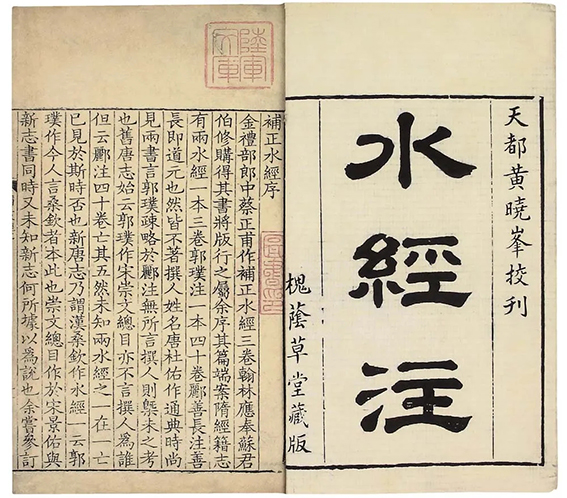 天都黃曉峯校刊
水經注
槐蔭草堂藏版
補正水經序
金禮部郎中蔡正甫作補正水經三卷翰林應奉蘇君
伯修購得其書將版行之屬余序其篇端案隋經籍志
有兩水經一本三卷郭璞注一本四十卷酈善長注善
長即道元也然皆不著撰人姓名唐杜佑作通典時尚
見兩書言郭璞疎略於酈注無所言撰人則槩未之考
也舊唐志始云郭璞作宋崇文總目亦不言撰人為誰
但云酈注四十卷亡其五然未知兩水經之一在一亡
已見於斯時否也新唐志乃謂漢桑欽作水經一云郭
璞作今人言桑欽者本此也崇文總目作於宋景佑與
新志書同時又未知新志何所據以為說也余嘗參訂
陸軍
文庫